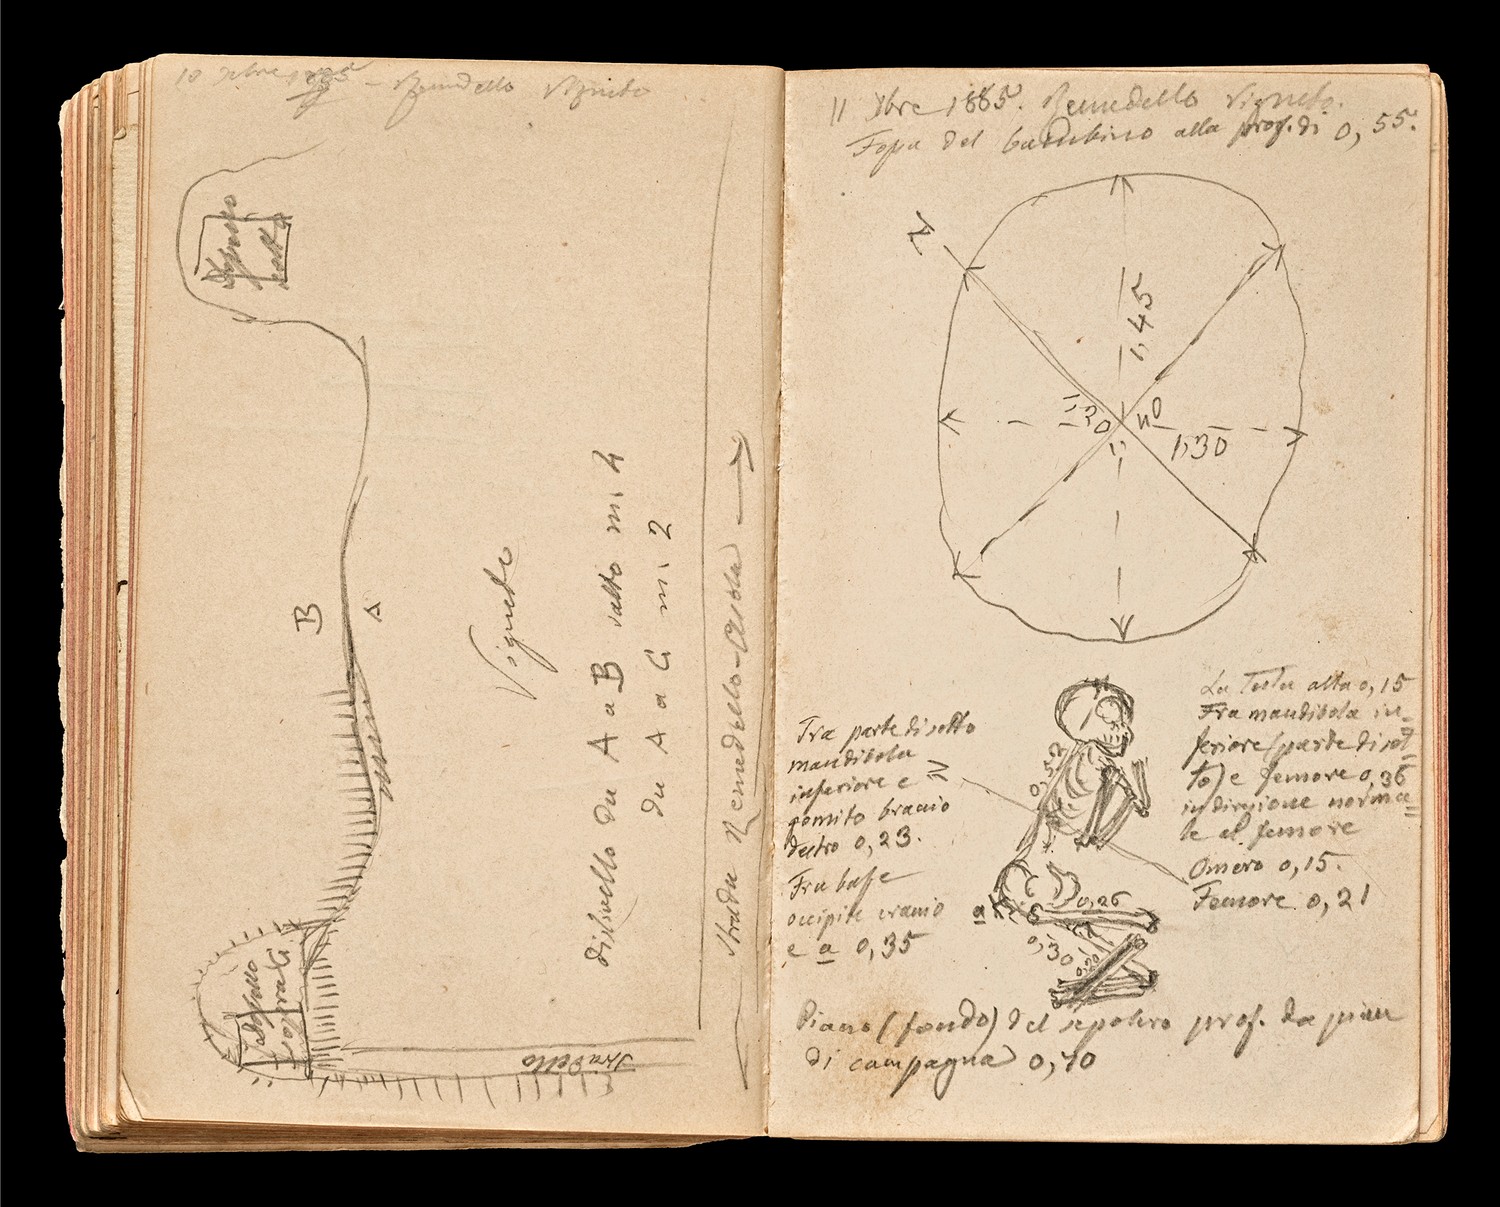 10 Xbre 1885 - Remedello Vigneto
B
A
Vigneto
dislivello da A a B salto m. 4
da A a C m. 2
Strada Remedello-Asola
Stradello
11 Xbre 1885. Remedello Vigneto.
Fossa del bambino alla prof. di 0,55.
N
1,45
1,30
1,30
La Testa alta 0,15
Fra mandibola in=
feriore (parte di sot=
to) e femore 0,36
in direzione norma=
le al femore
Omero 0,15.
Femore 0,21
Tra parte di sotto
mandibola
inferiore e
gomito braccio
destro 0,23.
Fra base
occipite cranio
e a 0,35
N
0,52
a
0,26
0,30
0,20
Piano (fondo) del sepolcro prof. da piano
di campagna 0,70